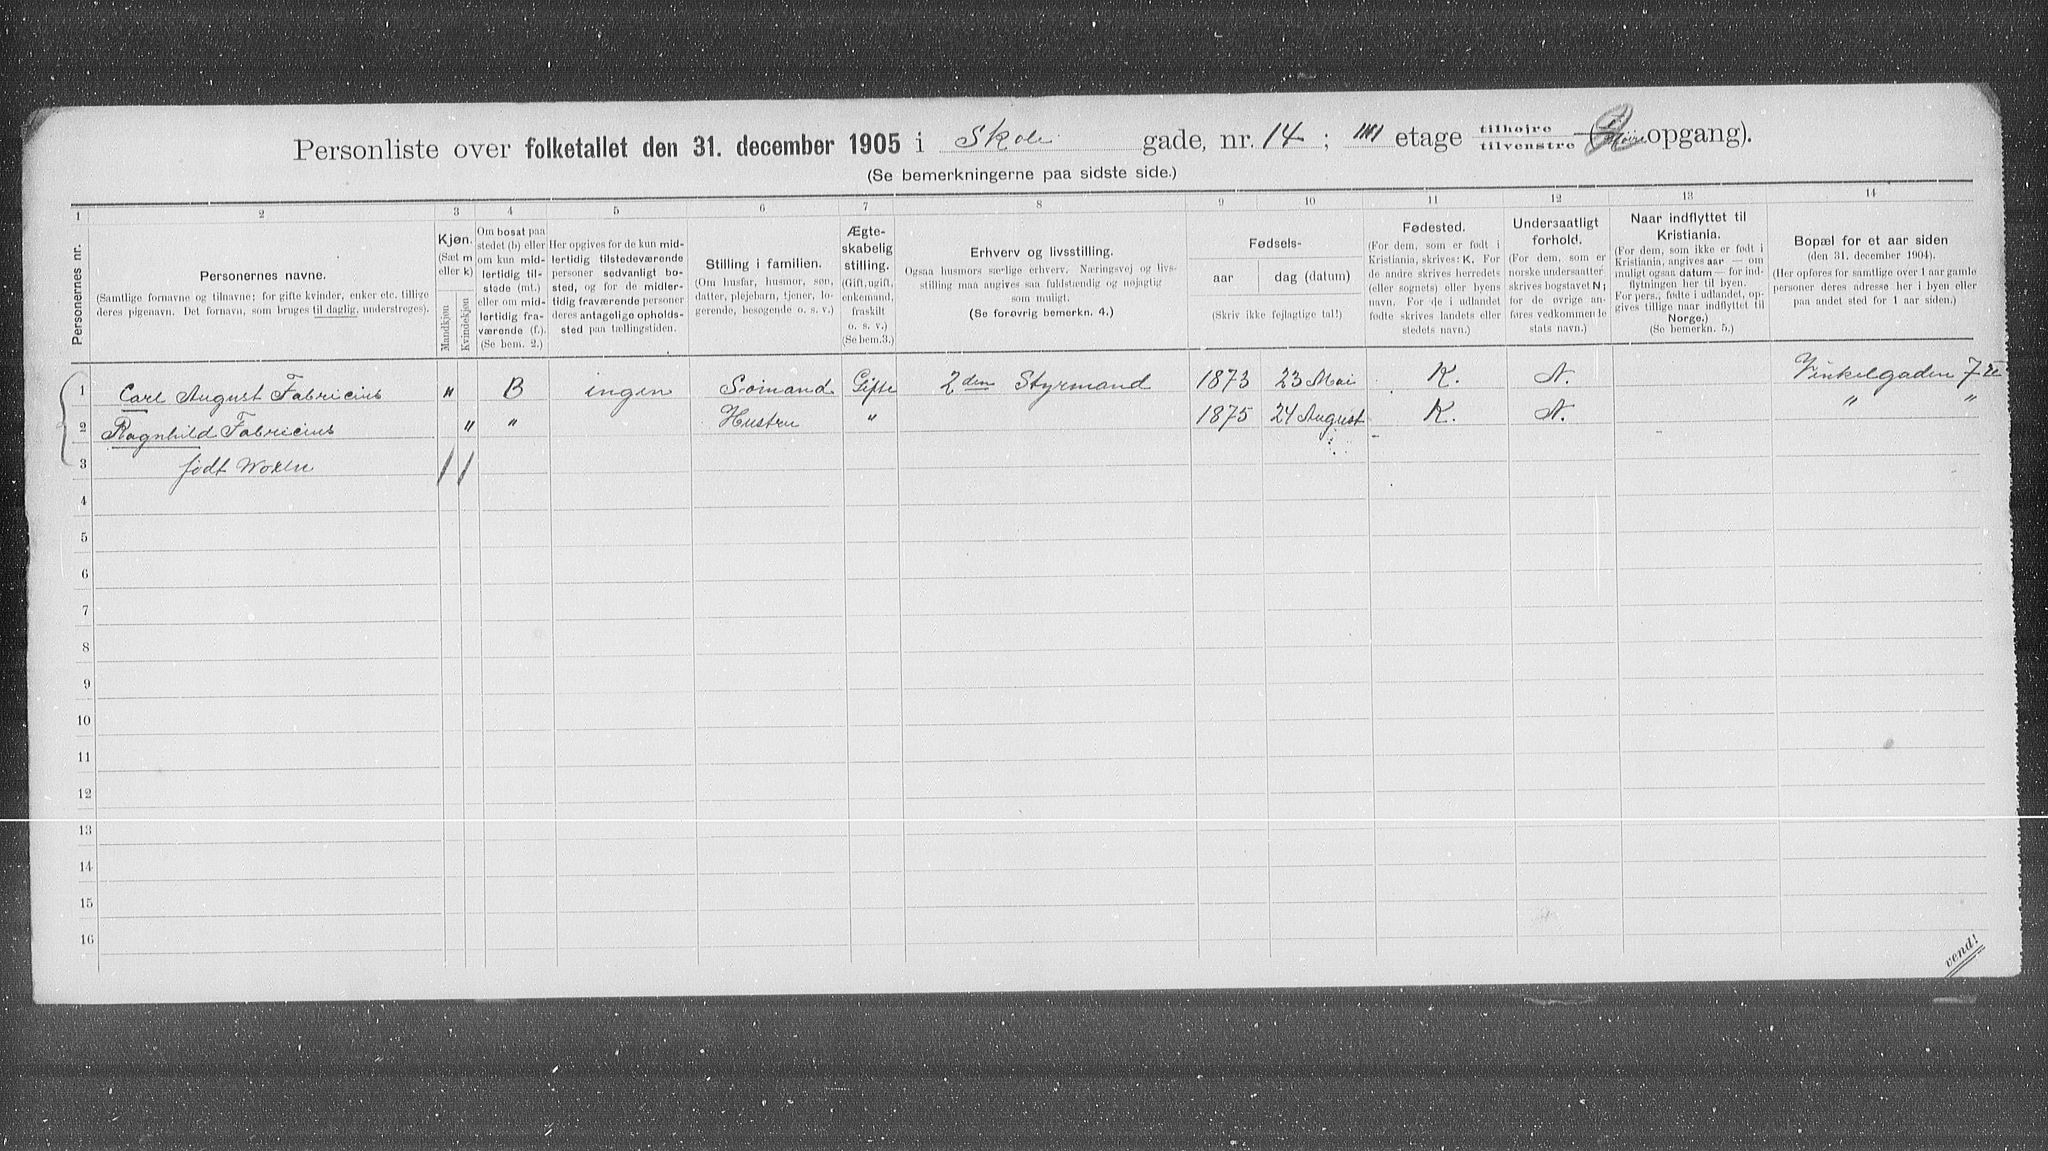 Personliste over folketallet den 31. december 1905 i Skole gade, nr. 14; etage tilhøjre tilvenstre ( opgang).
(Se bemerkningerne paa sidste side.)
1 2 3 4 5 6 7 8 9 10 11 12 13 14
Personernes nr.
Personernes navne.
(Samtlige fornavne og tilnavne; for gifte kvinder, enker etc. tillige deres pigenavn. Det fornavn, som bruges til daglig, understreges).
Kjøn.
(Sæt m eller k)
Mandkjøn
Kvindekjøn
Om bosat paa stedet (b) eller om kun midlertidig tilstede (mt.) eller om midlertidig fraværende (f.). (Se bem. 2.)
Her opgives for de kun midlertidig tilstedeværende personer sedvanligt bosted, og for de midlertidig fraværende personer deres antagelige opholdssted paa tællingstiden.
Stilling i familien.
(Om husfar, husmor, søn, datter, plejebarn, tjener, logerende, besøgende o. s. v.)
Ægteskabelig stilling.
(Gift, ugift, enkemand, fraskilt o. s. v.) (Se bem. 3.)
Erhverv og livsstilling.
Ogsaa husmors særlige erhverv. Næringsvej og livsstilling maa angives saa fuldstændig og nøjagtig som muligt.
(Se forøvrig bemerkn. 4.)
Fødsels-
aar dag (datum)
(Skriv ikke fejlagtige tal!)
Fødested.
(For dem, som er født i Kristiania, skrives: K. For de andre skrives herredets (eller sognets) eller byens navn. For de i udlandet fødte skrives landets eller stedets navn.)
Undersaatligt forhold.
(For dem, som er norske undersaatter skrives bogstavet N; for de øvrige anføres vedkommende stats navn.)
Naar indflyttet til Kristiania.
(For dem, som ikke er født i Kristiania, angives aar — om muligt ogsaa datum — for indflytningen her til byen. For pers., fødte i udlandet, opgives tillige naar indflyttet til Norge.)
(Se bemerkn. 5.)
Bopæl for et aar siden
(den 31. december 1904).
(Her opføres for samtlige over 1 aar gamle personer deres adresse her i byen eller paa andet sted for 1 aar siden.)
1 Carl August Fabricius " B ingen Sømand Gifte 2den Styrmand 1873 23 Mai K. N. Vinkelgaden 7
2 Ragnhild Fabricius " " Hustru " 1875 24 August K. N. " "
3 født Woxen
4
5
6
7
8
9
10
11
12
13
14
15
16
vend!